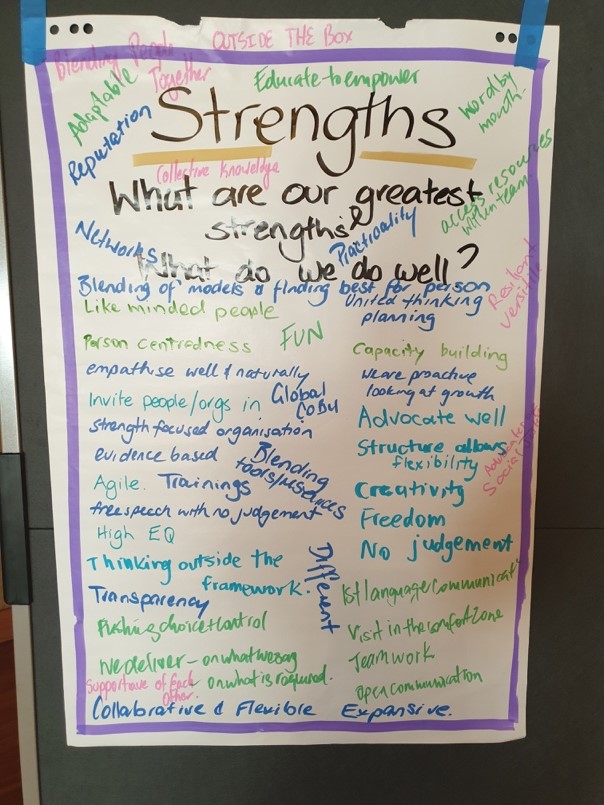 OUTSIDE THE BOX
Blending People
Together
Adaptable
Educate to empower
Word by
mouth
Reputation
Strengths
Collective knowledge
What are our greatest
strengths &
access resources
within team
Networks
Practicality
What do we do well?
Blending of models & finding best for person
Resilient
versitile
Like minded people
United thinking
planning
FUN
Person centredness
Capacity building
empathise well & naturally
we are proactive
looking at growth
Invite people/orgs in
Global
Advocate well
strength focused organisation
Structure allows
flexibility
Social
evidence based
Blending
tools/resources
Agile.
Trainings
Creativity
free speech with no judgement
Freedom
High EQ
No judgement
Thinking outside the
framework.
Different
1st language
Transparency
Pushing choice + control
Visit in the comfort zone
We deliver - on what we say
on what is required.
Team work
Supportive of each
other.
open communication
Collabrative & Flexible
Expansive.